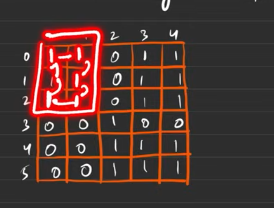 2 3 4
0 0 1 1
1 0 1 1
2 0 1 1
3 0 0 1 0 0
4 0 0 1 1 1
5 0 0 1 1 1